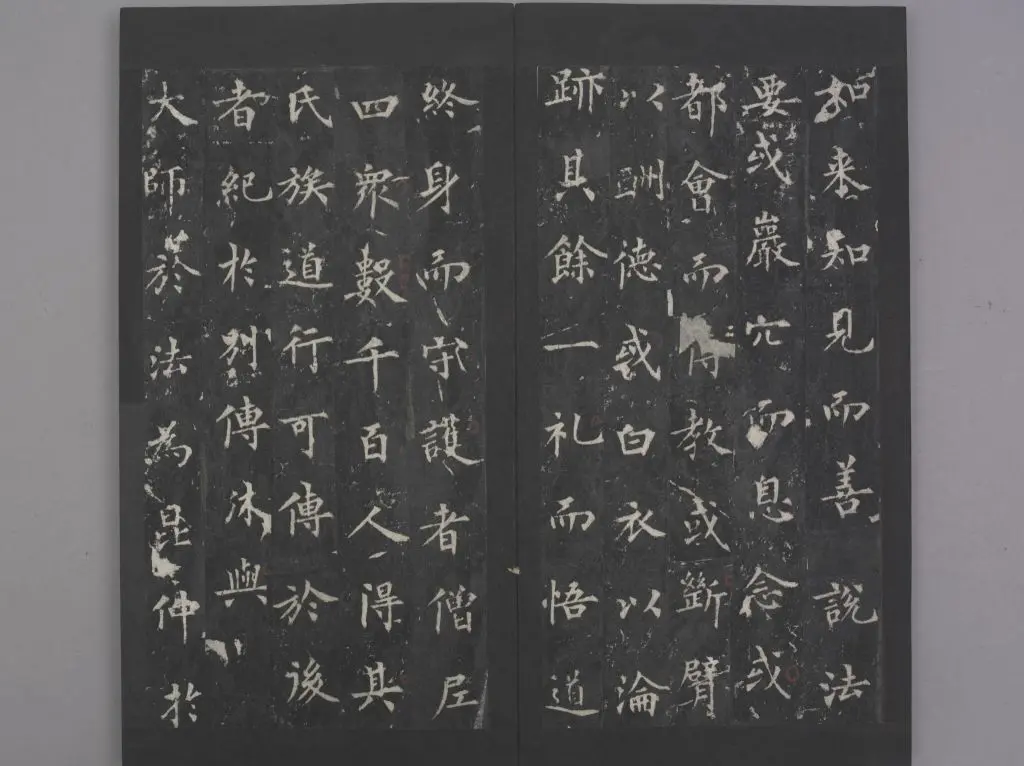 如来知見而善說法
要或巖穴而息念或
都會而行教或斷臂
以酬德或白衣以淪
跡其餘一礼而悟道
終身而守護者僧尼
四衆數千百人得其
氏族道行可傳於後
者紀於別傳休與
大師於法為昆仲於